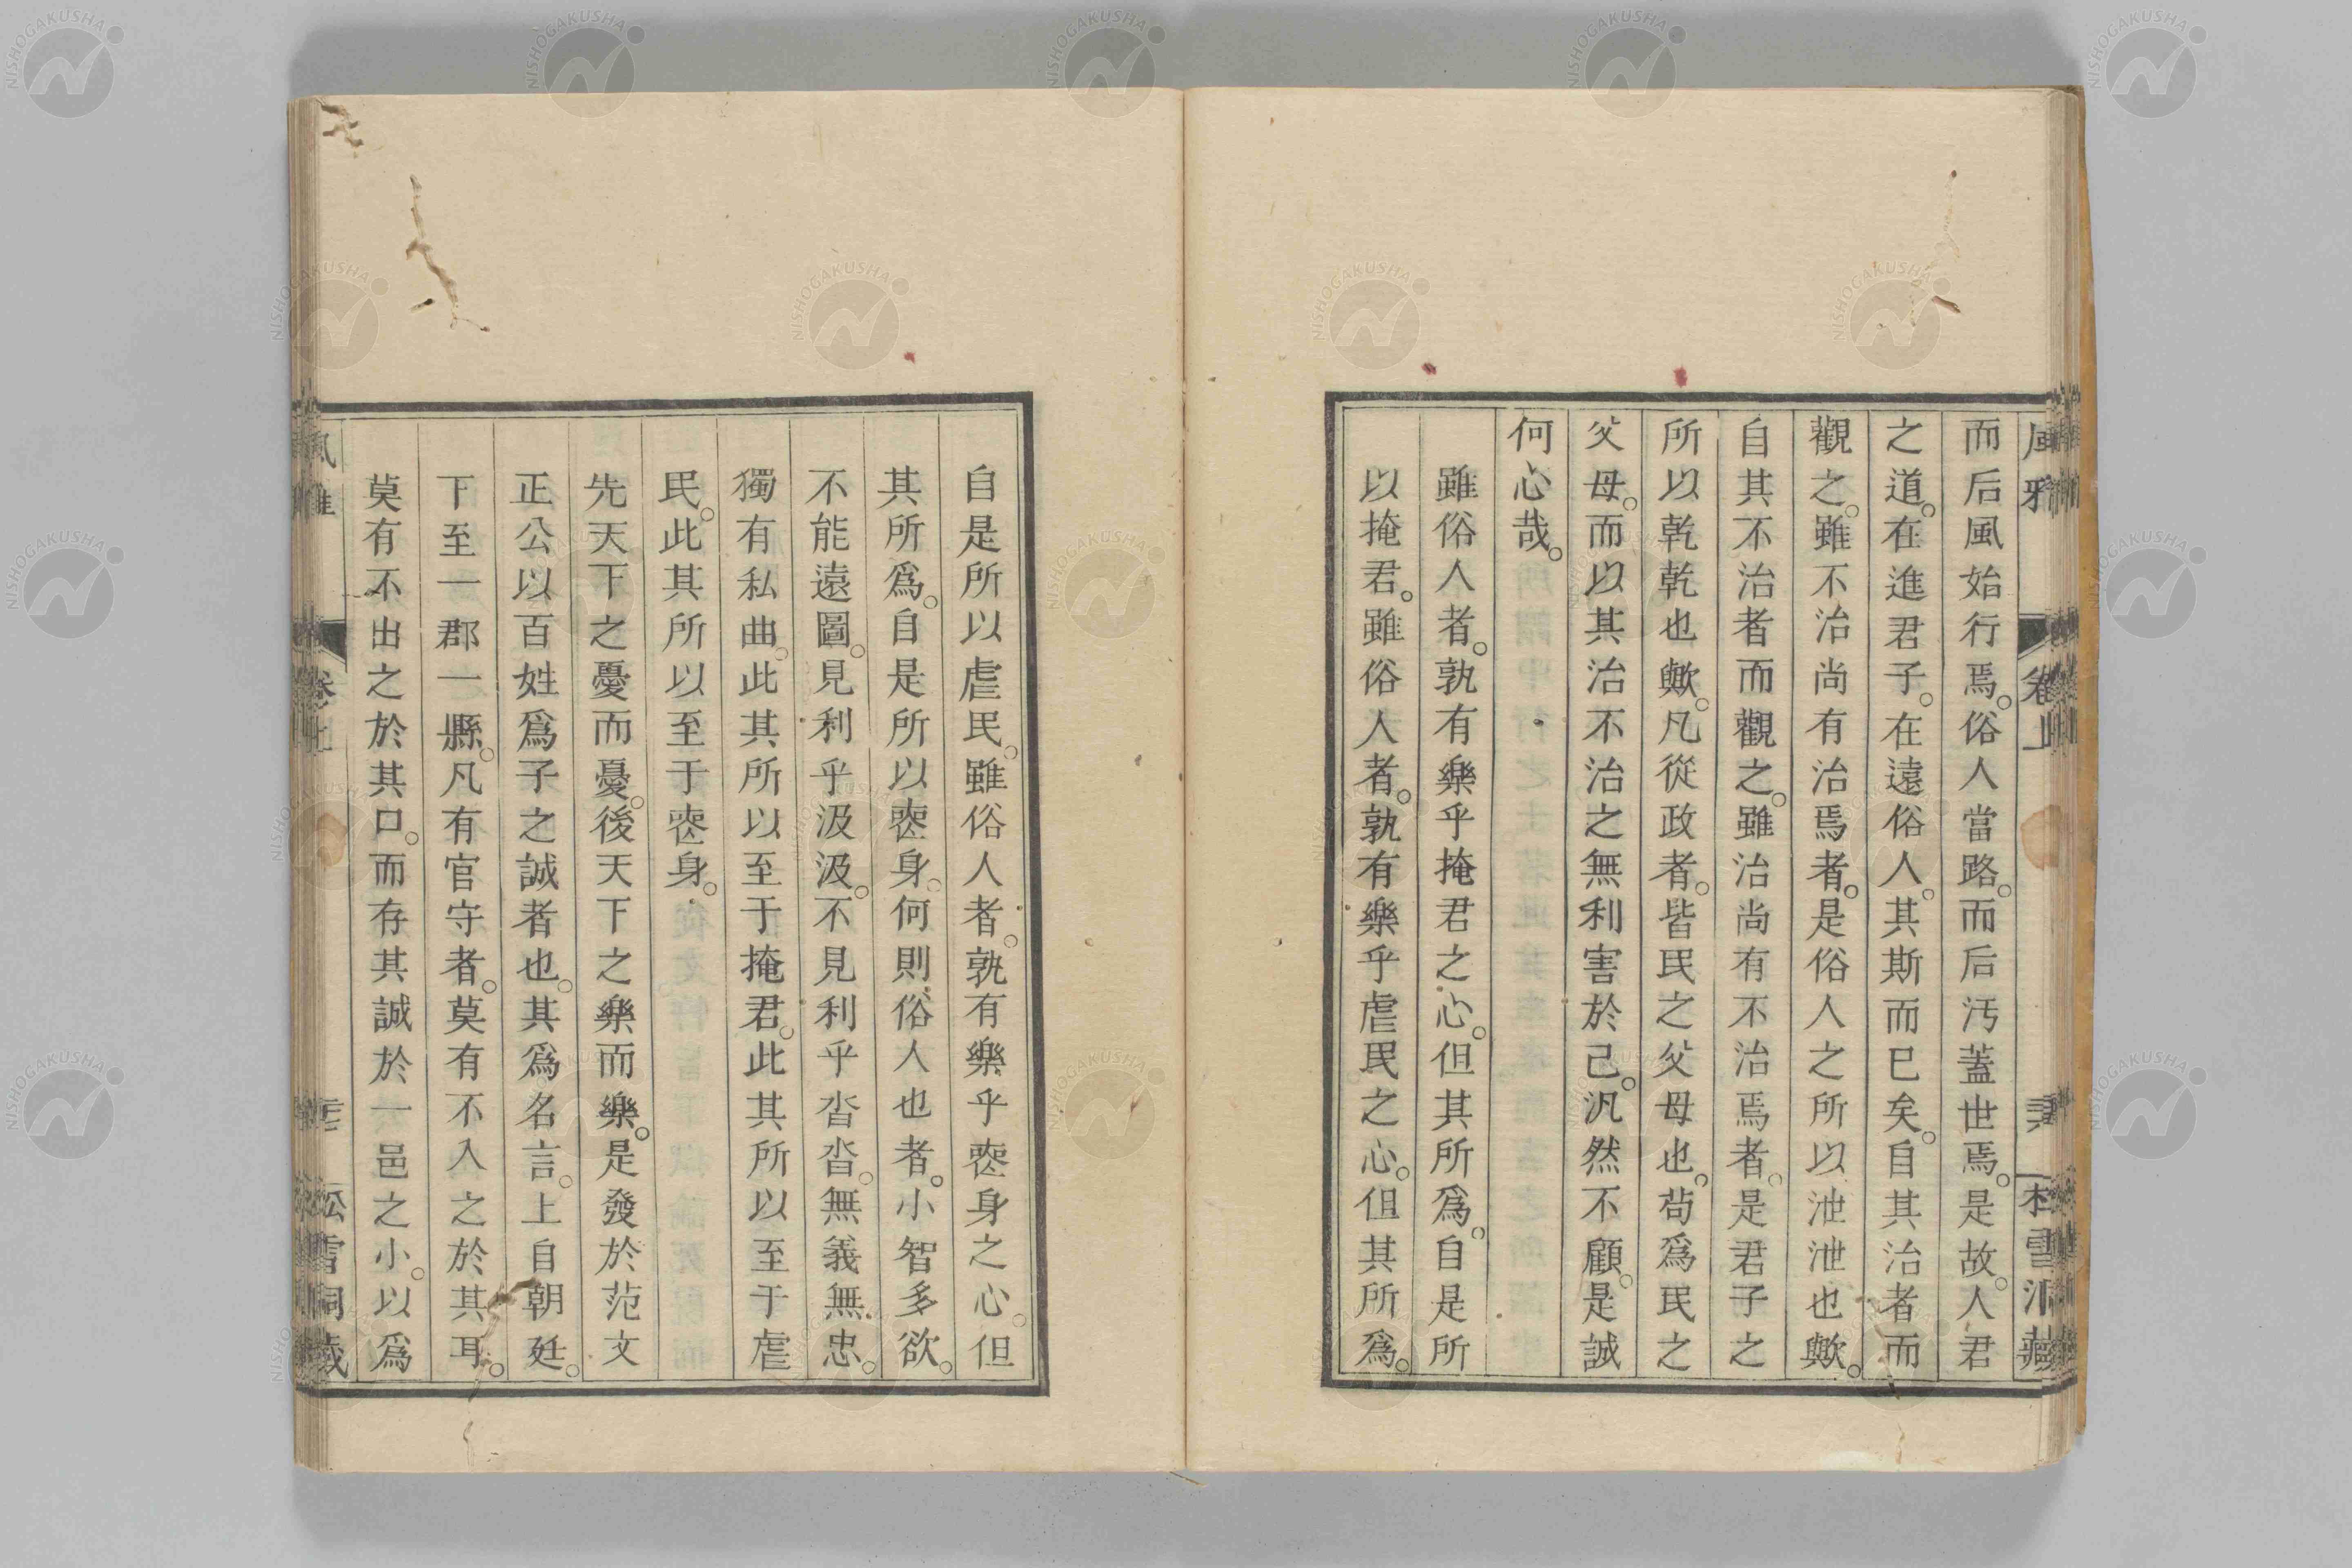 而后風始行焉。俗人當路。而后汚蓋世焉。是故。人君
之道。在進君子。在遠俗人。其斯而已矣。自其治者而
觀之。雖不治尚有治焉者。是俗人之所以泄泄也歟。
自其不治者而觀之。雖治尚有不治焉者。是君子之
所以乾乾也歟。凡從政者。皆民之父母也。苟爲民之
父母。而以其治不治之無利害於己。汎然不顧。是誠
何心哉。
雖俗人者。孰有樂乎掩君之心。但其所爲。自是所
以掩君。雖俗人者。孰有樂乎虐民之心。但其所爲。
自是所以虐民。雖俗人者。孰有樂乎喪身之心。但
其所爲。自是所以喪身。何則俗人也者。小智多欲。
不能遠圖。見利乎汲汲。不見利乎沓沓。無義無忠。
獨有私曲。此其所以至于掩君。此其所以至于虐
民。此其所以至于喪身。
先天下之憂而憂。後天下之樂而樂。是發於范文
正公以百姓爲子之誠者也。其爲名言。上自朝廷。
下至一郡一縣。凡有官守者。莫有不入之於其耳。
莫有不出之於其口。而存其誠於一邑之小。以爲
風雅 卷上 松雪洞藏
NISHOGAKUSHA